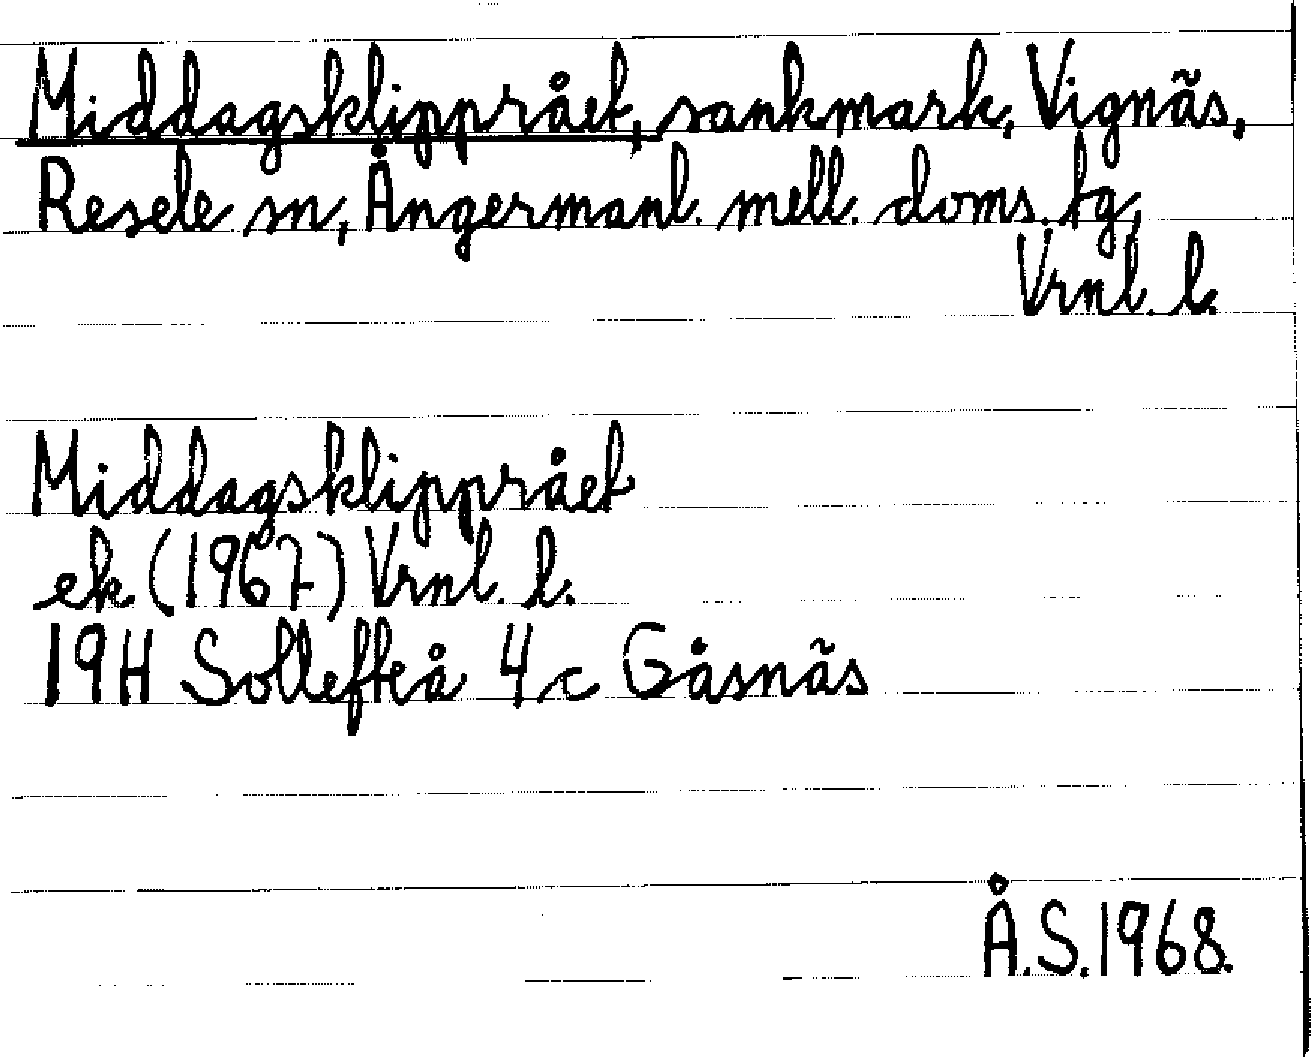 Middagsklipprået, sankmark, Vignäs,
Resele sn, Ångermanl. mell. doms. tg,
Vrnl. l.
Middagsklipprået
ek (1967) Vrnl. l.
19H Sollefteå 4c Gåsnäs
Å.S. 1968.